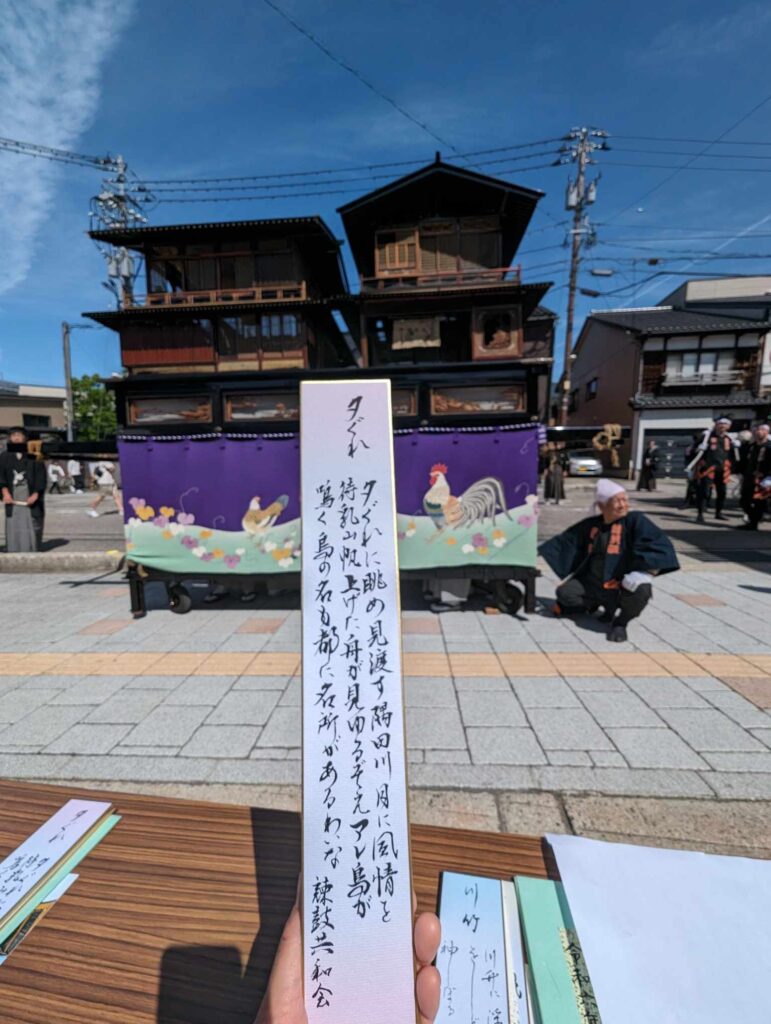 夕ぐれ
夕ぐれに眺め見渡す隅田川 月に風情を
待乳山帆上げた舟が見ゆるぞえ アレ鳥が
鳴く鳥の名も都に名所があるわいな
諫鼓共和会
夕ぐれ
川竹